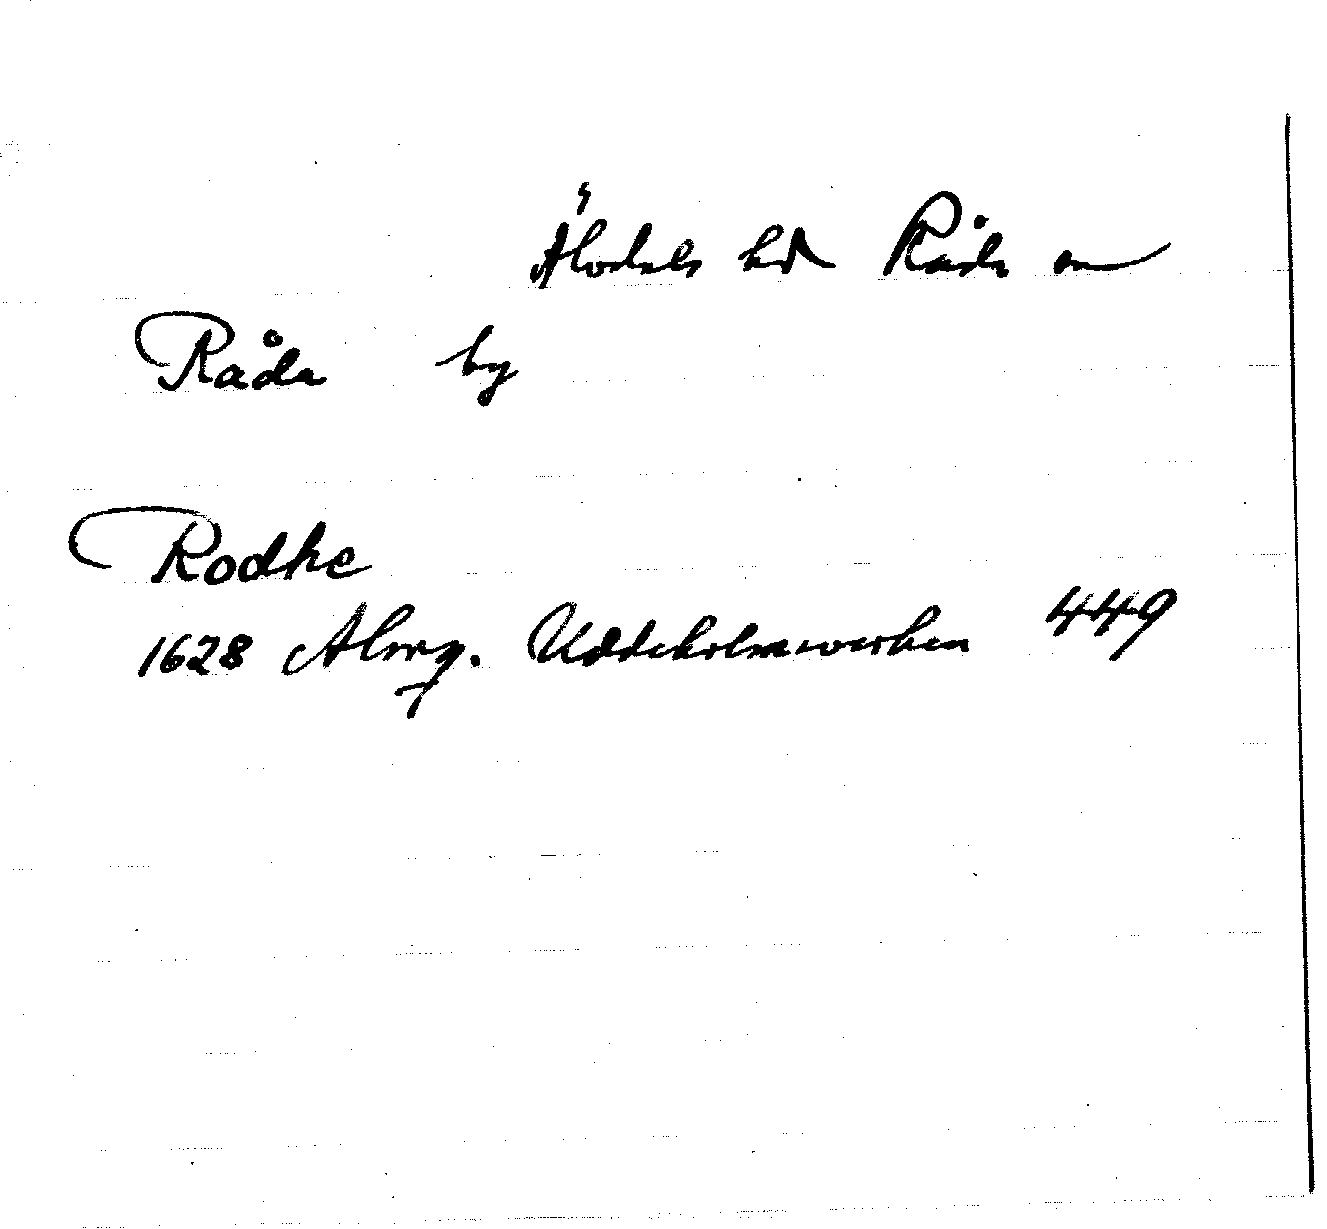 Älvdals hd Råda sn
Råda by
Rodhe
1628 Almq. Uddeholmsverken 449